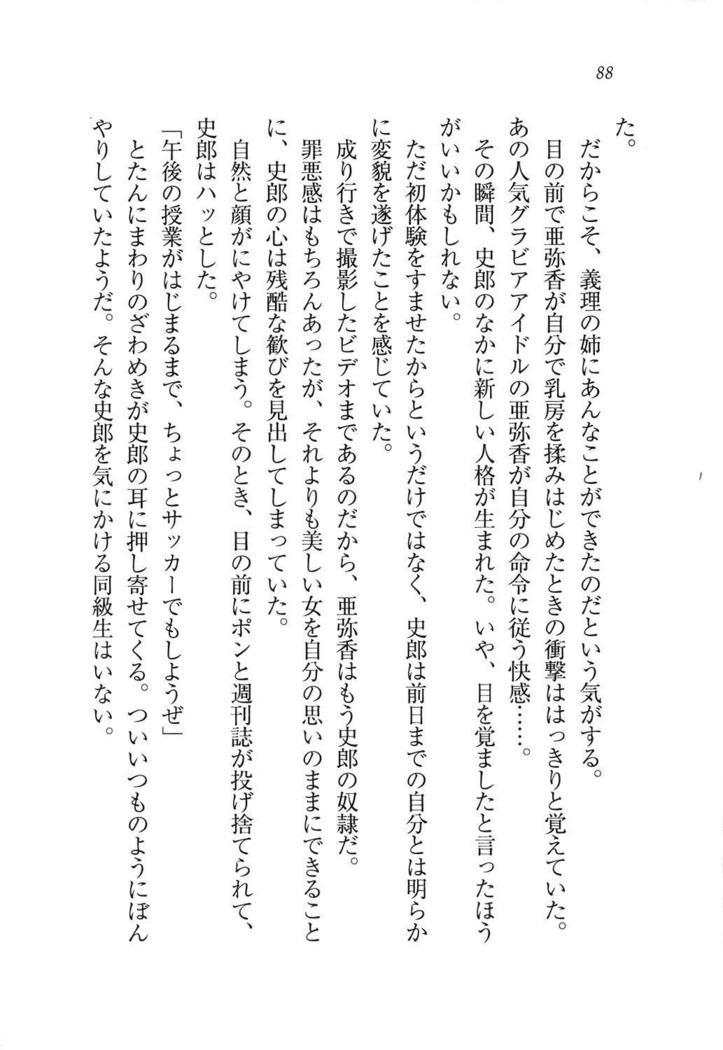 88
た。
だからこそ、義理の姉にあんなことができたのだという気がする。
目の前で亜弥香が自分で乳房を揉みはじめたときの衝撃ははっきりと覚えていた。
あの人気グラビアアイドルの亜弥香が自分の命令に従う快感……。
その瞬間、史郎のなかに新しい人格が生まれた。いや、目を覚ましたと言ったほう
がいいかもしれない。
ただ初体験をすませたからというだけではなく、史郎は前日までの自分とは明らか
に変貌を遂げたことを感じていた。
成り行きで撮影したビデオまであるのだから、亜弥香はもう史郎の奴隷だ。
罪悪感はもちろんあったが、それよりも美しい女を自分の思いのままにできること
に、史郎の心は残酷な歓びを見出してしまっていた。
自然と顔がにやけてしまう。そのとき、目の前にポンと週刊誌が投げ捨てられて、
史郎はハッとした。
「午後の授業がはじまるまで、ちょっとサッカーでもしようぜ」
とたんにまわりのざわめきが史郎の耳に押し寄せてくる。ついいつものようにぼん
やりしていたようだ。そんな史郎を気にかける同級生はいない。